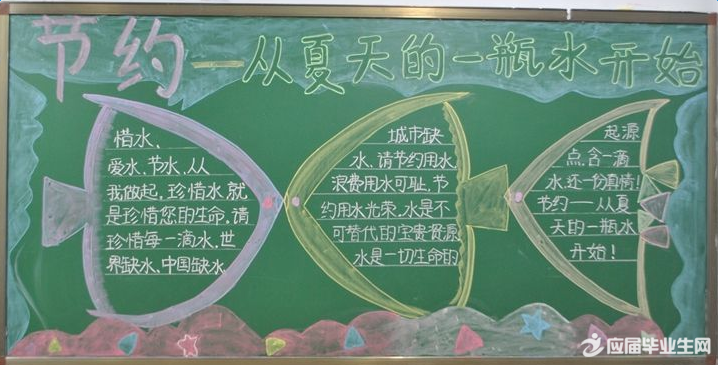 节约——从夏天的一瓶水开始
惜水、
爱水、节水,从
我做起,珍惜水就
是珍惜您的生命,请
珍惜每一滴水,世
界缺水,中国缺水,
城市缺
水,请节约用水,
浪费用水可耻,节
约用水光荣,水是不
可替代的宝贵资源
水是一切生命的
起源
点,含一滴
水,还一份真情!
节约——从夏
天的一瓶水
开始!
应届毕业生网